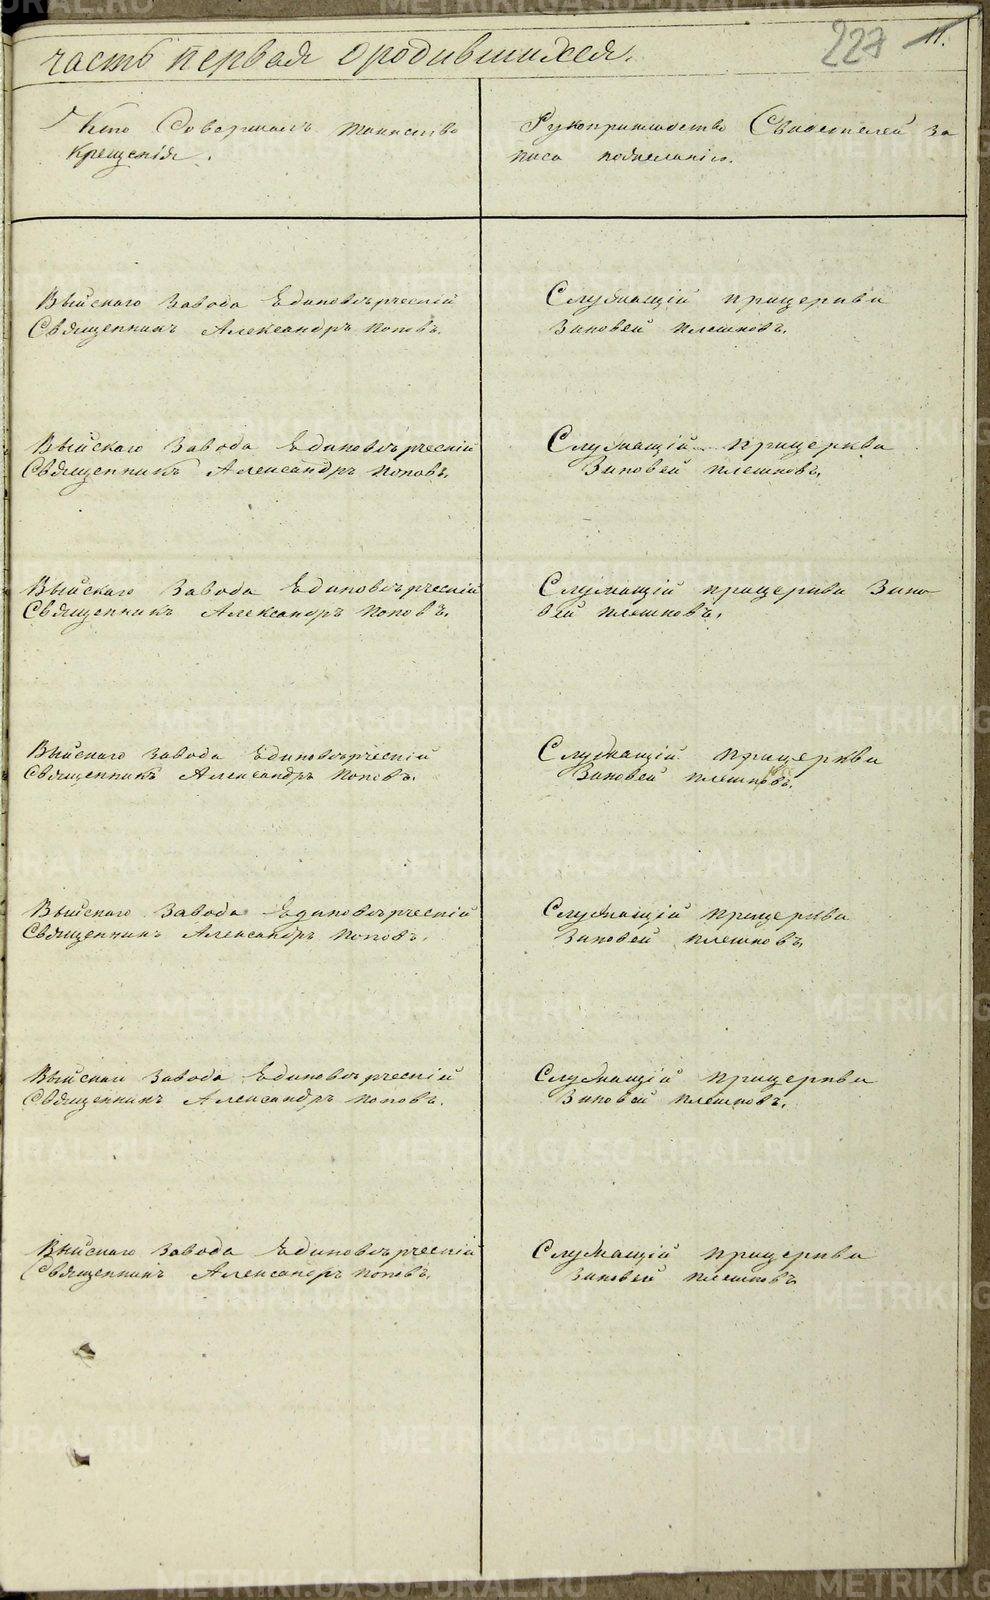 часть первая ородившихся.
227 11.
Кто Совершалъ таинство
Крещенія.
Рукоприкладство Свидетелей за
писа пожеланію.
Выйскаго Завода Единоверческій
Священникъ Александръ Поповъ.
Служащій прицеркви
Зиновей Плешковъ.
Выйскаго Завода Единоверческій
Священникъ Александръ Поповъ.
Служащій прицеркви
Зиновей Плешковъ.
Выйскаго Завода Единоверческій
Священникъ Александръ Поповъ.
Служащій прицеркви Зино
вей Плешковъ.
Выйскаго Завода Единоверческій
Священникъ Александръ Поповъ.
Служащій прицеркви
Зиновей Плешковъ.
Выйскаго Завода Единоверческій
Священникъ Александръ Поповъ.
Служащій прицеркви
Зиновей Плешковъ.
Выйскаго Завода Единоверческій
Священникъ Александръ Поповъ.
Служащій прицеркви
Зиновей Плешковъ.
Выйскаго Завода Единоверческій
Священникъ Александръ Поповъ.
Служащій прицеркви
Зиновей Плешковъ
METRIKI.GASO-URAL.RU